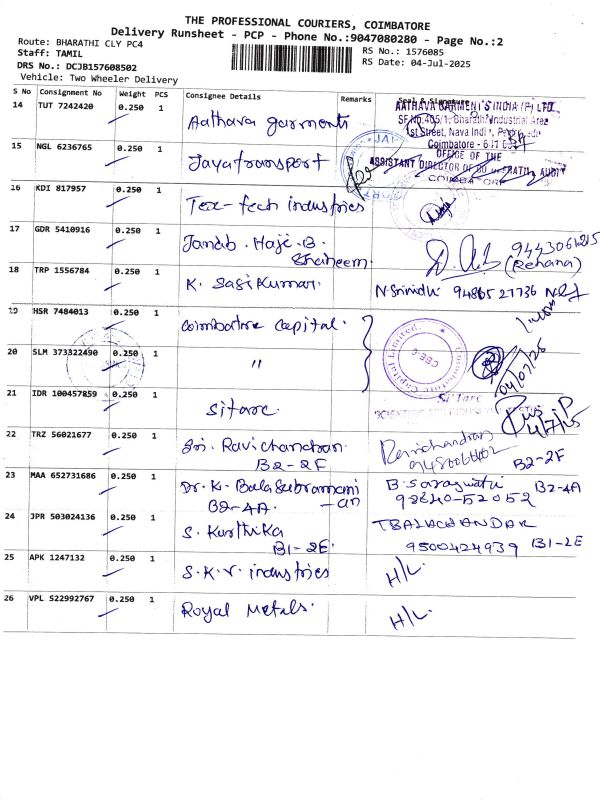 THE PROFESSIONAL COURIERS, COIMBATORE
Delivery Runsheet - PCP - Phone No.:9047080280 - Page No.:2
Route: BHARATHI CLY PC4
Staff: TAMIL
DRS No.: DCJB157608502
Vehicle: Two Wheeler Delivery
RS No.: 1576085
RS Date: 04-Jul-2025
S No Consignment No Weight PCS Consignee Details Remarks Seal & Signature
14 TUT 7242420 0.250 1 Aathava garments
AATHAVA GARMENTS INDIA (P) LTD.
SF.No.405/1, Bharathi Industrial Area
1st Street, Nava India,
Coimbatore -
15 NGL 6236765 0.250 1 Jayatransport
OFFICE OF THE
ASSISTANT DIRECTOR OF AUDIT
COIMBATORE
16 KDI 817957 0.250 1 Tex-tech industries
17 GDR 5410916 0.250 1 Janab. Haje. B.
Shaheem. (Rehana)
18 TRP 1556784 0.250 1 K. SasiKumar. N.Srinidhi
19 HSR 7484013 0.250 1 Coimbatore capital.
20 SLM 373322490 0.250 1 "
Coimbatore Capital Limited
CBE-6
04/07/25
21 IDR 100457859 0.250 1 Sitarc.
Si'Tarc
4/7/25
22 TRZ 56021677 0.250 1 Sri. Ravichandran. Ravichandran
B2-2F B2-2F
23 MAA 652731686 0.250 1 Dr. K. BalaSubramani B. Saraswathi B2-4A
B2-4A. -an 98640-52052
24 JPR 503024136 0.250 1 S. Karthika TBALACHANDAR
B1-2E. 9500424939 B1-2E
25 APK 1247132 0.250 1 S.K.V. industries H/L.
26 VPL 522992767 0.250 1 Royal Metals. H/L.